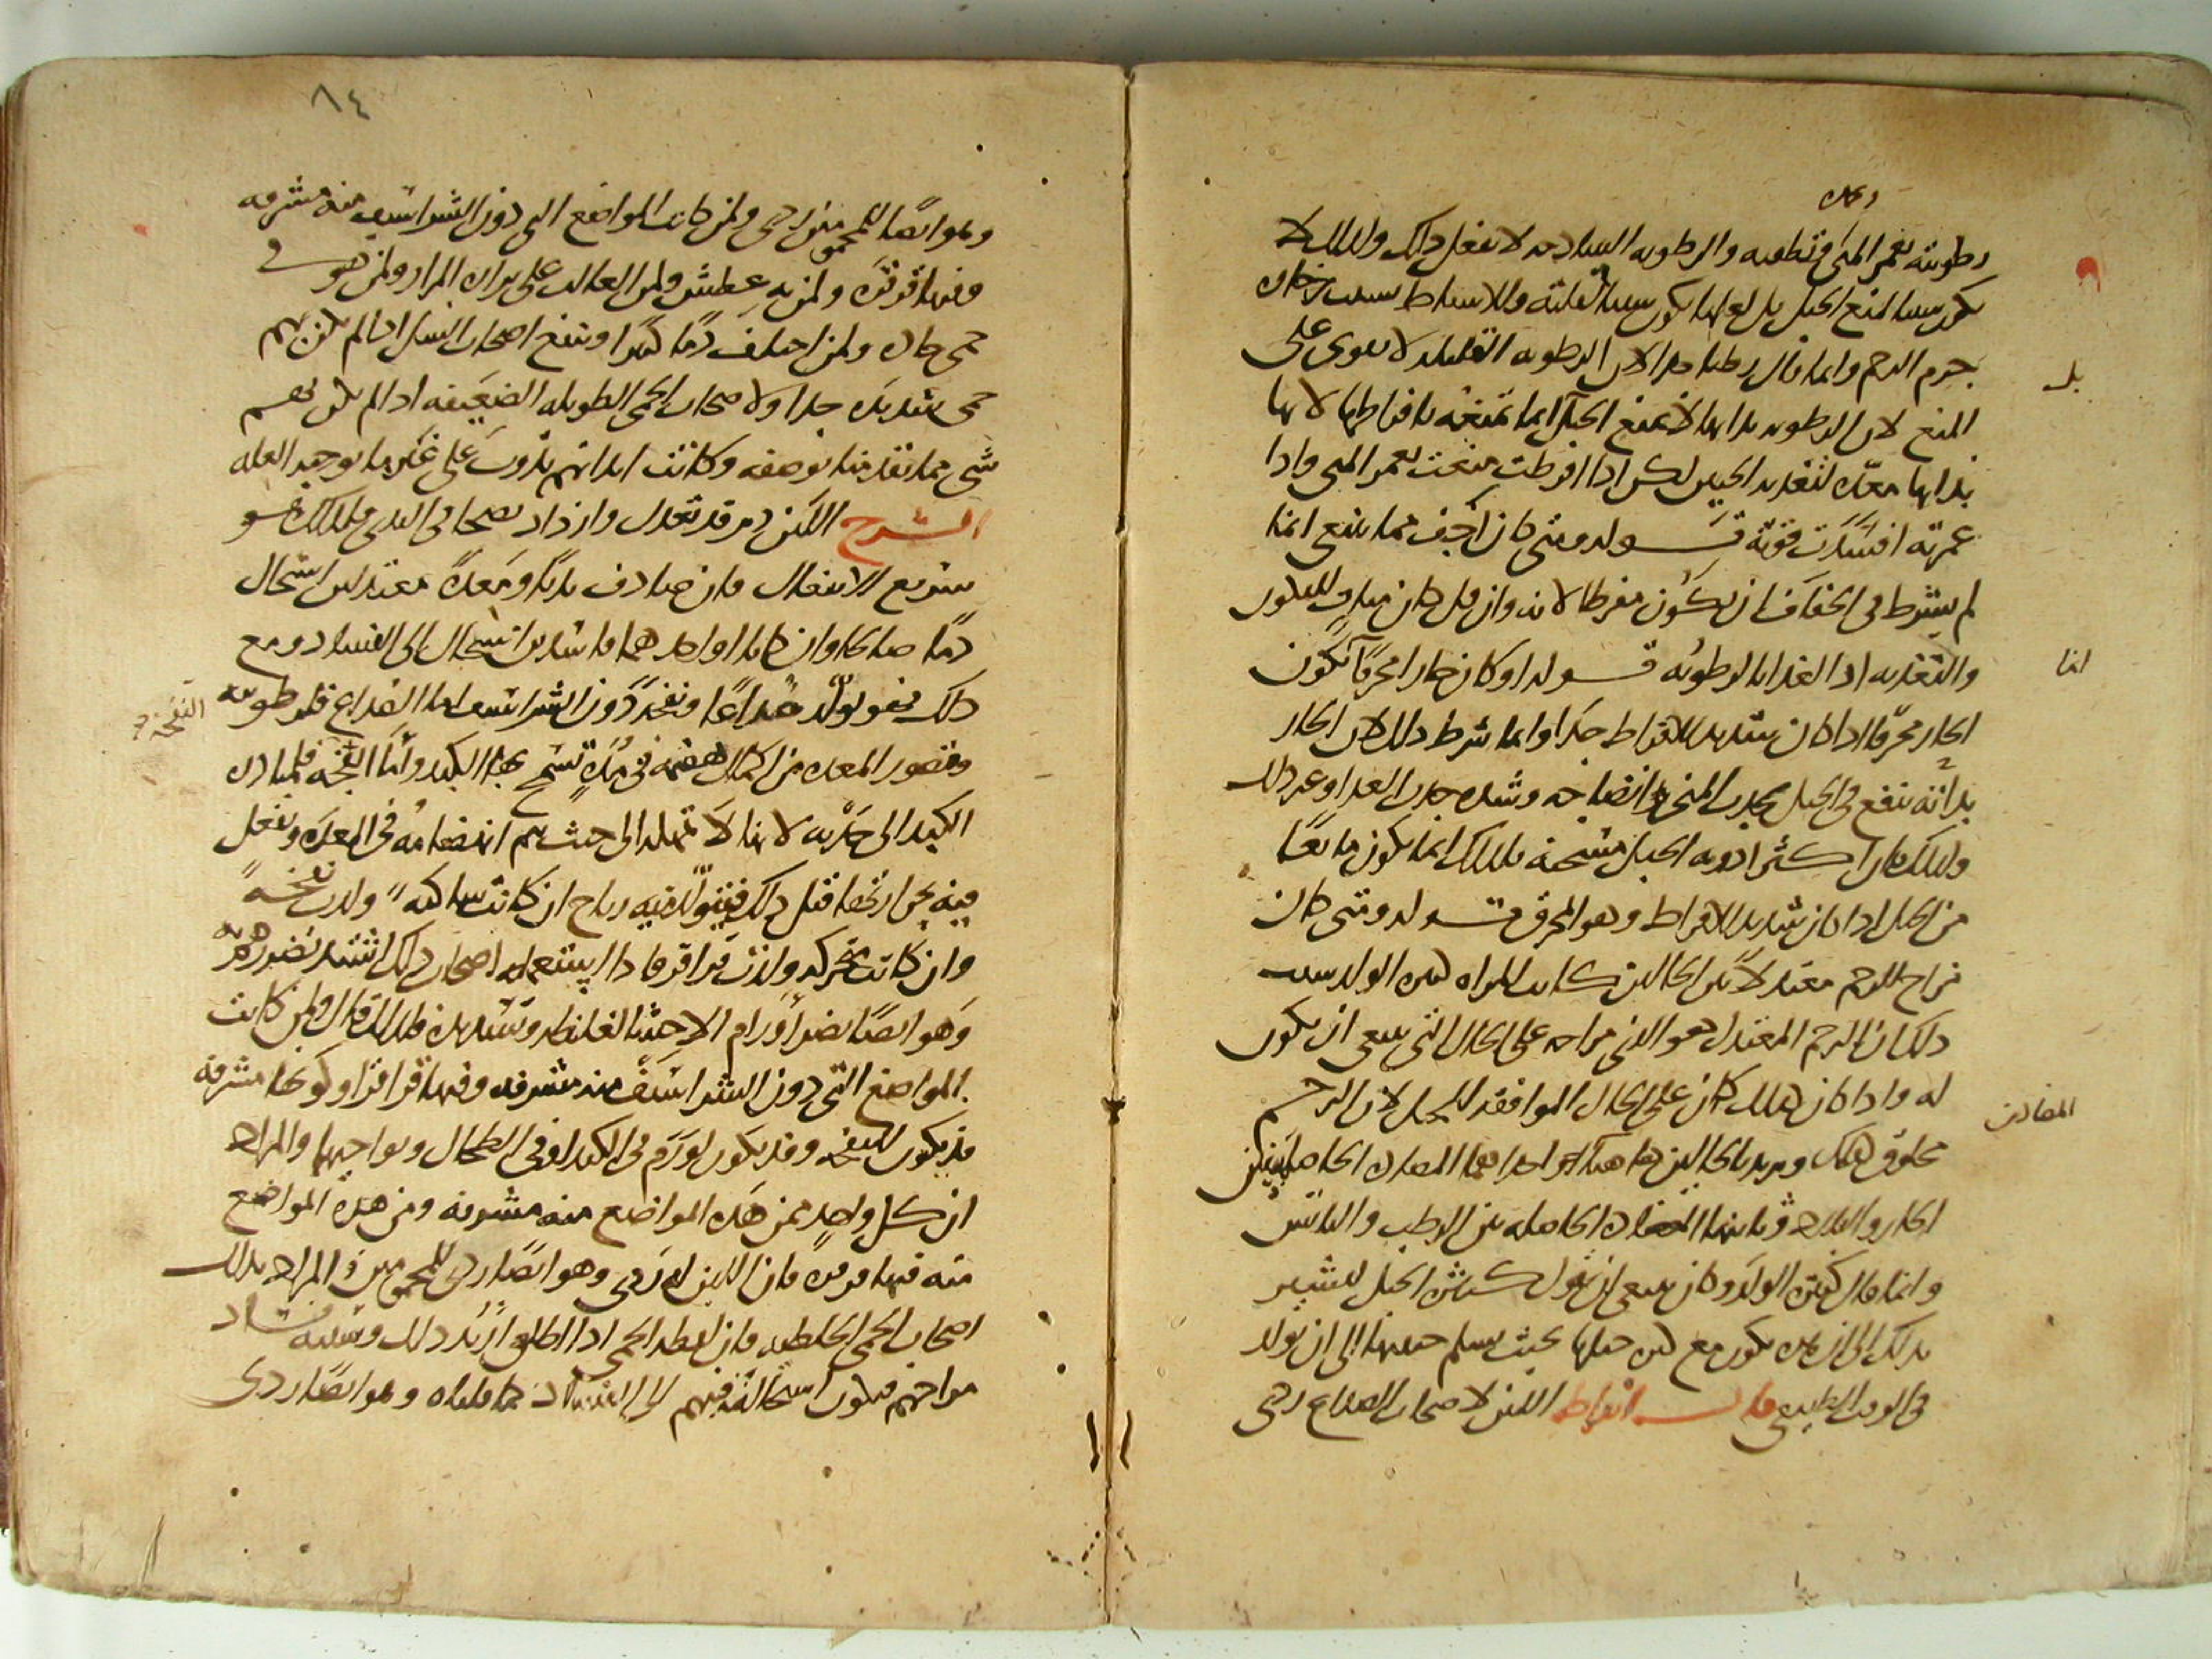 رطوبته تغمر المنى فتطفيه والرطوبه الساذجه لا تفعل ذلك ولذلك لا
يكون سببا لمنع الحبل بل لعلها يكون سببا لقلته وللاسقاط بسبب
جرم الرحم وانما قال رطبا جدا لان الرطوبه القليله لا تقوى على
المنع لان الرطوبه بذاتها لا تمنع الحبل انما تمنعه بافراطها لانها
بذاتها معدّه لتغذيه الجنين لكن اذا افرطت منعت بغمر المنى واذا
غمرته افسدت قوته قـــوله ومتى كان اجف مما ينبغى انما
لم يشترط فى الجفاف ان يكون مفرطا لانه وان قل كان مناف للتكون
والتغذيه اذ الغذا بالرطوبه قـــوله او كان حارا محرقا يكون
الحار محرقا اذا كان شديد الافراط جدا وانما شرط ذلك لان الحار
بذاته ينفع فى الحبل بجذب المنى وانضاجه وشده جذب الغذا وغير ذلك
ولذلك كان اكثر ادويه الحبل مسخنه فلذلك انما يكون مانعا
من الحبل اذا كان شديد الافراط وهو المحرق قـــوله ومتى كان
مزاج الرحم معتدلا بين الحالين كانت المراه كثيره الولد بسبب
ذلك ان الرحم المعتدل هو الذى مزاجه على الحال التى ينبغى ان يكون
له واذا كان كذلك كان على الحال الموافقه للحبل لان الرحم
مخلوق لذلك ويريد بالحالين هاهنا احداهما المضاده الحاصله بين
الحار والبارد وثانيها المضاده الحاصله بين الرطب واليابس
وانما قال كثيره الولد وكان ينبغى ان يقول كثيره الحبل ليشير
بذلك الى ان يكون مع كثره حبلها بحيث يسلم جنينها الى ان يولد
فى الوقت الطبيعى قال ابقراط اللبن لاصحاب الصداع ردى
بل
انما
المضادتين
٨٤
وهو ايضا للمحمومين ردى ولمن كانت المواضع التى دون الشراسيف منه مشرفه
وفيها قرقره ولمن به عطش ولمن الغالب على برازه المرار ولمن هو فى
حمى حاده ولمن اختلف دما كثيرا وينفع اصحاب السل اذا لم يكن بهم
حمى شديده جدا ولاصحاب الحمى الطويله الضعيفه اذا لم يكن معهم
شى مما تقدمنا بوصفه وكانت ابدانهم تذوب على غير ما توجبه العله
الشرح اللبن دم قد تعدل وازداد نضجا فى الثدى فلذلك هو
سريع الانفعال فان صادف بدنا ومعده معتدلين استحال
دما صالحا وان كانا او احدهما فاسدين استحال الى الفساد ومع
ذلك فهو يولد صداعا ونفخا دون الشراسيف اما الصداع فلرطوبته
وقصور المعده عن اكمال هضمه فى مده تسمح بها الكبد واما النفخه فلمبادره
الكبد الى جذبه لانها لا تمهله الى حيث يتم انهضامه فى المعده وتفعل
فيه بحرارتها قبل ذلك فيتولد فيه رياح ان كانت ساكنه ولدت نفخه
وان كانت متحركه ولدت قراقر فاذا استعمله اصحاب ذلك اشتد تضررهم به
وهو ايضا يضر اورام الاحشا لغلظه وتسديده فلذلك قال ولمن كانت
المواضع التى دون الشراسيف منه مشرفه وفيها قراقر وكونها مشرفه
قد يكون للنفخه وقد يكون لورم فى الكبد او فى الطحال ونواحيهما والمراد
ان كل واحد ممن هذه المواضع منه مشرفه ومن هذه المواضع
منه فيها قرقره فان اللبن له ردى وهو ايضا ردى للمحمومين والمراد بذلك
اصحاب الحمى الخلطيه فان لفظه الحمى اذا اطلق اريد ذلك وسببه فساد
مزاجهم فيكون استحالته فيهم الى الفساد كما قلناه وهو ايضا ردى
النفخه